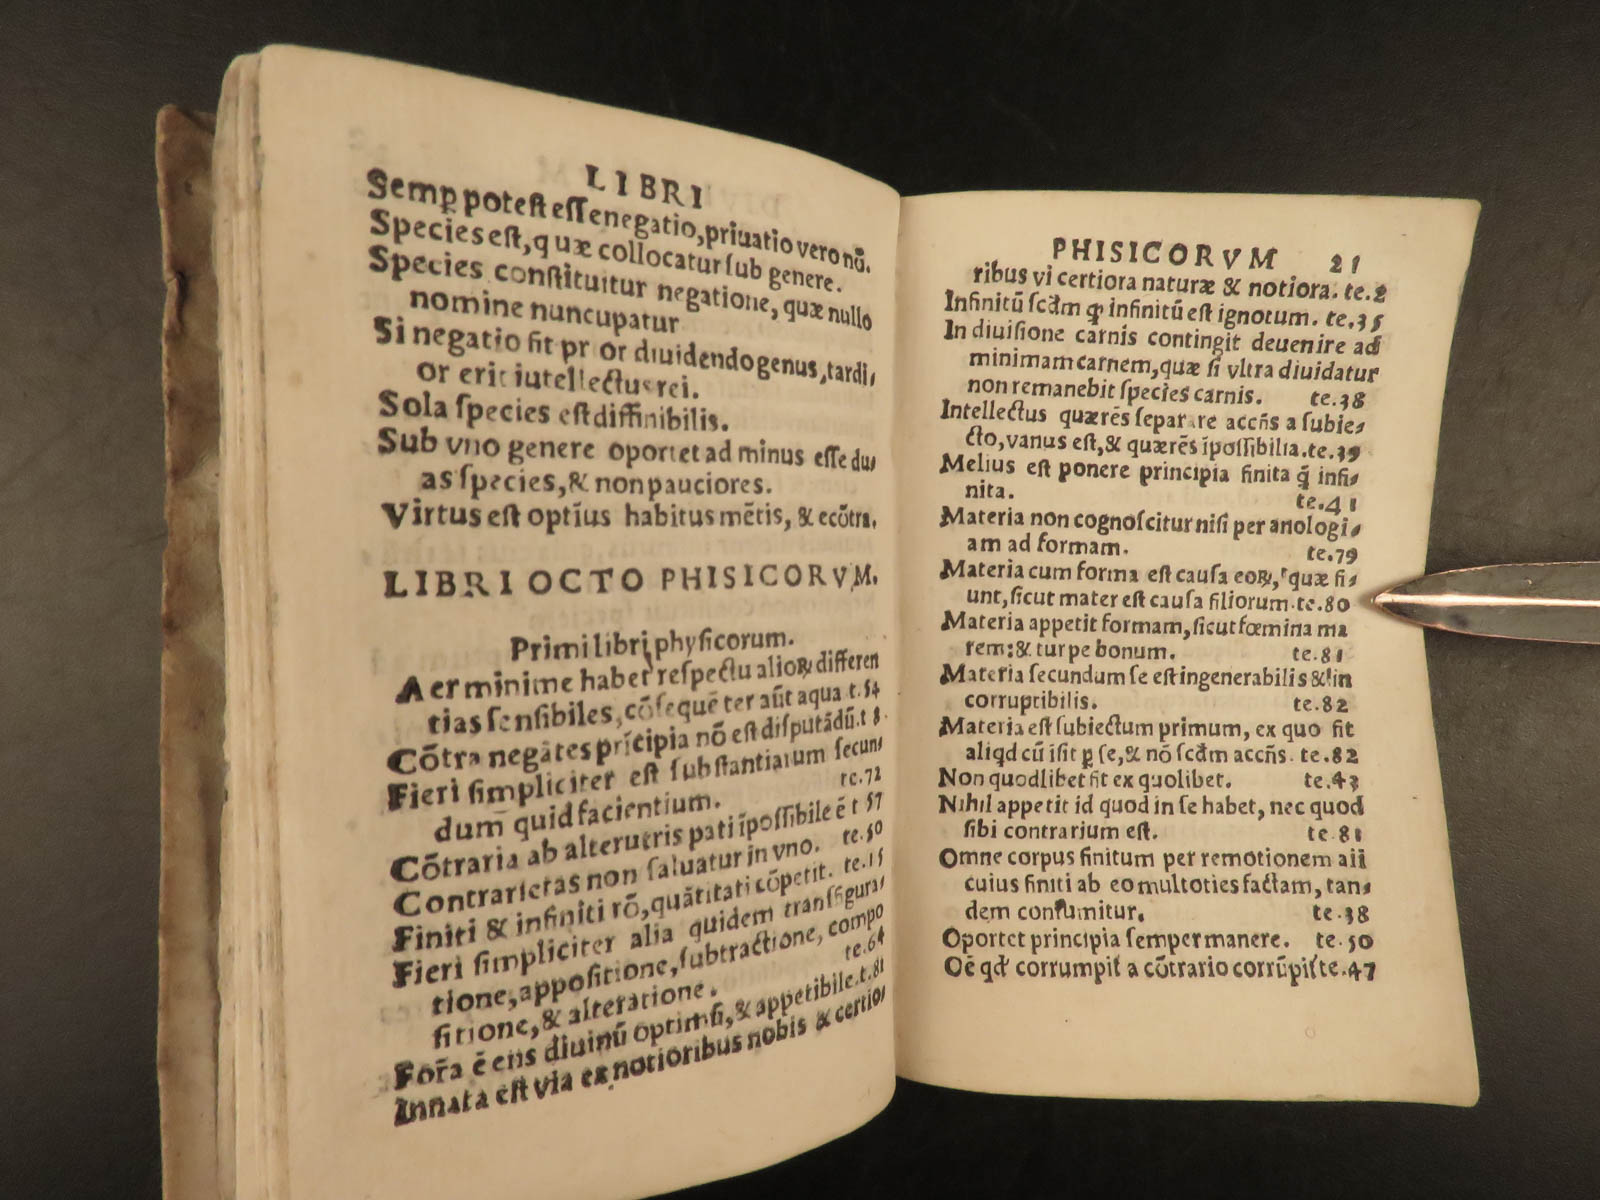 LIBRI
Semꝑ poteſt eſſe negatio, priuatio vero nō.
Species eſt, quæ collocatur ſub genere.
Species conſtituitur negatione, quæ nullo
nomine nuncupatur
Si negatio fit pr or diuidendo genus, tardi,
or erit iutellectus rei.
Sola ſpecies eſt diffinibilis.
Sub vno genere oportet ad minus eſſe du,
as ſpecies, & non pauciores.
Virtus eſt optĩus habitus mẽtis, & ecõtra.
LIBRI OCTO PHISICORVM.
Primi libri phyſicorum.
Aer minime habet reſpectu alioꝝ differen
tias ſenſibiles, cõſequẽter aũt aqua t.54
Cõtra negãtes prĩcipia nõ eſt diſputãdũ.t 8.
Fieri ſimpliciter eſt ſubſtantiarum ſecun,
dum quid facientium. te.72
Cõtraria ab alterutris pati ĩpoſſibile ẽ t 57
Contrarietas non ſaluatur in vno. te.50
Finiti & infiniti rõ, quãtitati cõpetit. te.15
Fieri ſimpliciter alia quidem tranſfigura,
tione, appoſitione, ſubtractione, compo
ſitione, & alteratione. te.64
For̃a ẽ ens diuinũ optimũ, & appetibile.t.81
Innata eſt via ex notioribus nobis & certio,
PHISICORVM 21
ribus vi certiora naturæ & notiora. te.2
Infinitũ ſcd̃m ꝙ infinitũ eſt ignotum. te.35
In diuiſione carnis contingit deuenire ad
minimam carnem, quæ ſi vltra diuidatur
non remanebit ſpecies carnis. te.38
Intellectus quærẽs ſeparare accñs a ſubie,
cto, vanus eſt, & quærẽs ĩpoſſibilia.te.39
Melius eſt ponere principia finita q̃ infi,
nita. te.41
Materia non cognoſcitur niſi per anologi,
am ad formam. te.79
Materia cum forma eſt cauſa eoꝝ, quæ fi,
unt, ſicut mater eſt cauſa filiorum.te.80
Materia appetit formam, ſicut fœmina ma
rem: & turpe bonum. te.81
Materia secundum ſe eſt ingenerabilis & in
corruptibilis. te.82
Materia eſt ſubiectum primum, ex quo fit
aliqd cũ iſit ꝑ ſe, & nõ ſcd̃m accñs. te.82
Non quodlibet fit ex quolibet. te.43
Nihil appetit id quod in ſe habet, nec quod
ſibi contrarium eſt. te.81
Omne corpus finitum per remotionem alı
cuius finiti ab eo multoties factam, tan,
dem conſumitur. te.38
Oportet principia ſemper manere. te.50
Oẽ qd̃ corrumpit̃ a cõtrario corrũpit̃ te.47